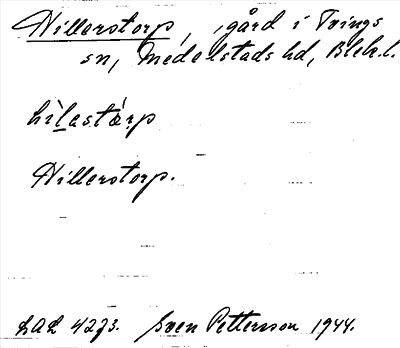 Hillerstorp, gård i Tvings
sn, Medelstads hd, Blek. l.
hìlastǽrp
Hillerstorp.
LAL 4273. Sven Pettersson 1944.